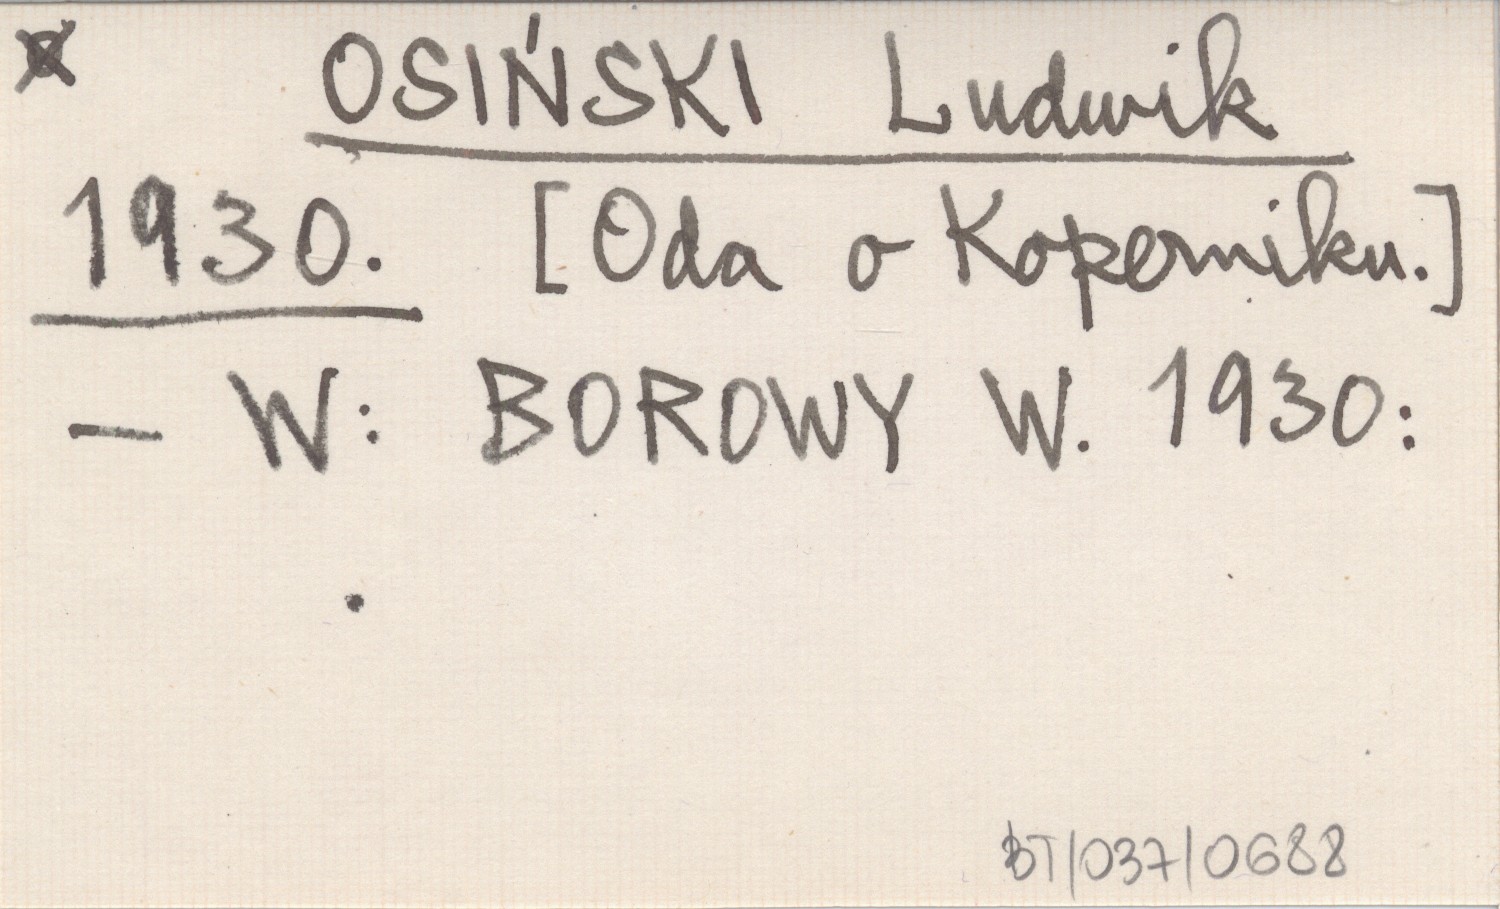 OSIŃSKI Ludwik
1930. [Oda o Koperniku.]
— W: BOROWY W. 1930:
BT/037/0688